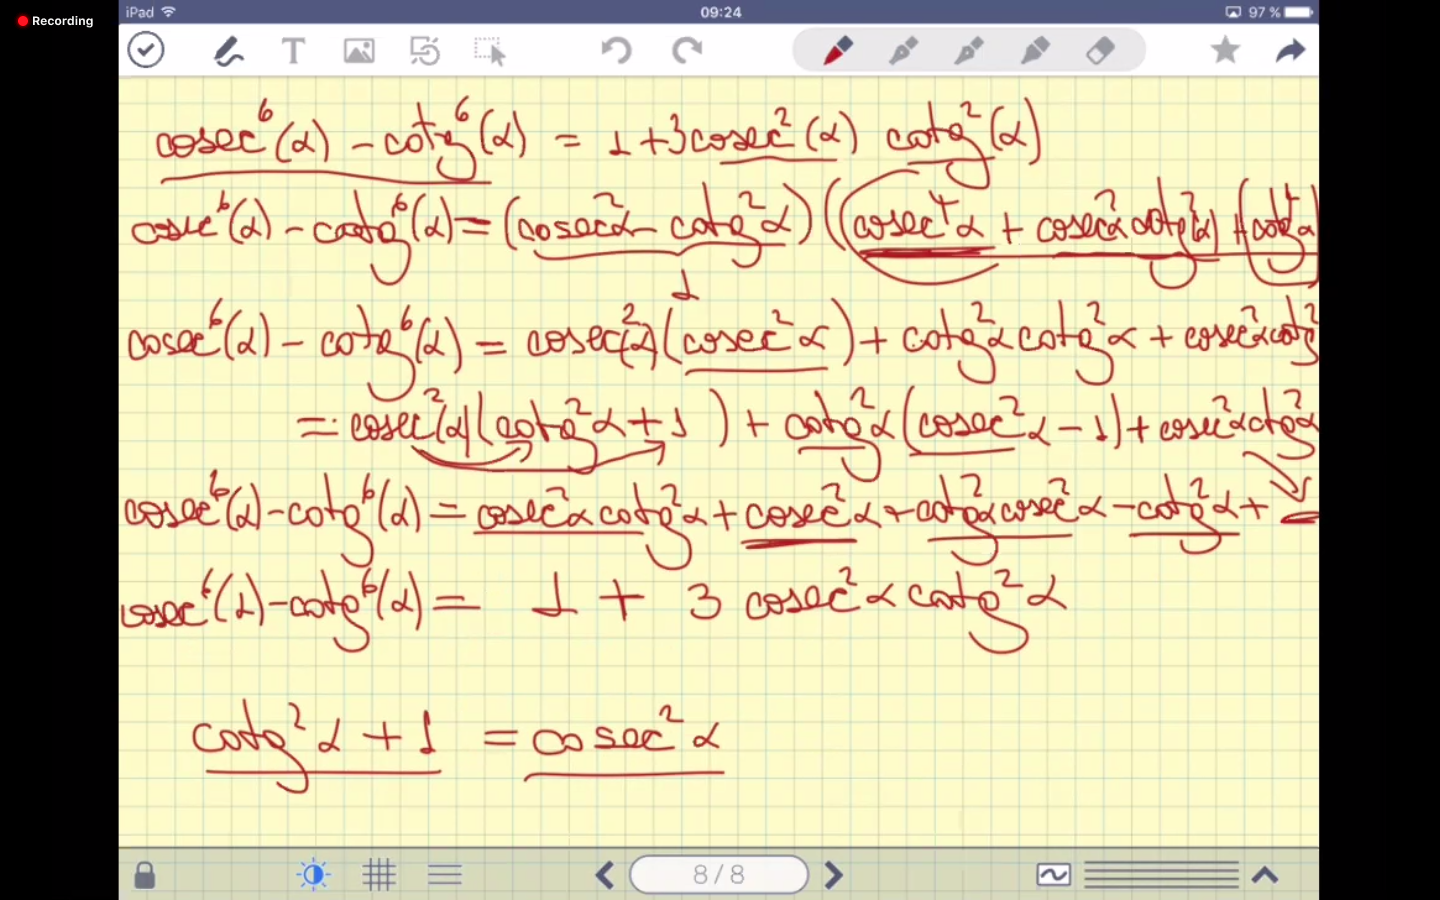 Recording
iPad 09:24 97 %
T
cosec⁶(α) - cotg⁶(α) = 1 + 3cosec²(α) cotg²(α)
cosec⁶(α) - cotg⁶(α) = (cosec²α - cotg²α) ((cosec⁴α + cosec²α cotg²(α) + (cotg⁴α)
1
cosec⁶(α) - cotg⁶(α) = cosec²(α) (cosec²α) + cotg²α cotg²α + cosec²α cotg²
= cosec²(α) (cotg²α + 1) + cotg²α (cosec²α - 1) + cosec²α cotg²
cosec⁶(α) - cotg⁶(α) = cosec²α cotg²α + cosec²α + cotg²α cosec²α - cotg²α +
cosec⁶(α) - cotg⁶(α) = 1 + 3 cosec²α cotg²α
cotg²α + 1 = cosec²α
8 / 8